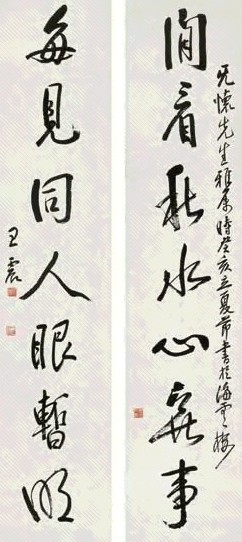 无懷先生雅屬時癸亥立夏節書於海雲樓
閒看秋水心無事
每見同人眼暫明
王震